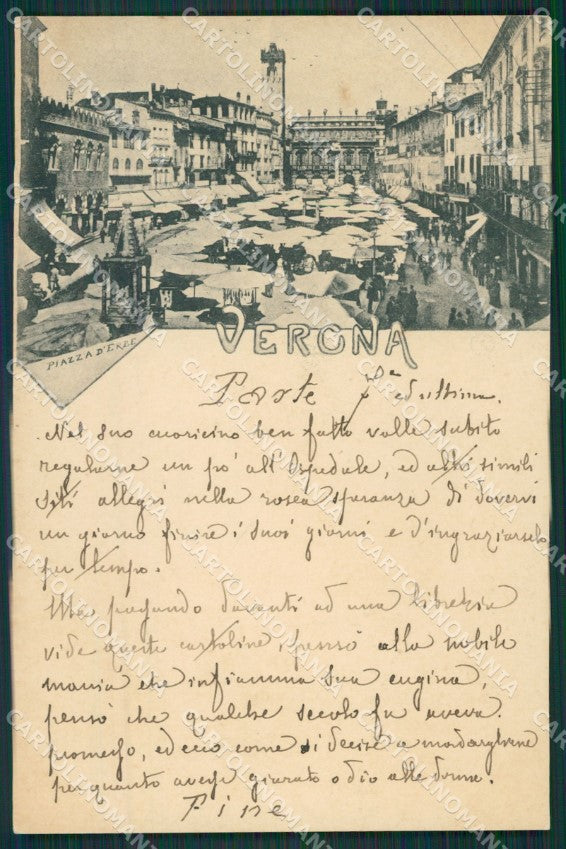 PIAZZA D'ERBE
VERONA
Parte 7ª ed ultima.
Nel suo cuoricino ben fatto volle subito
regalarne un po' all'Ospedale, ed altri simili
siti allegri nella rosea speranza di dovervi
un giorno finire i suoi giorni e d'ingraziarselo
per tempo.
Ma passando davanti ad una libreria
vide queste cartoline, pensò alla nobile
mania che infiamma sua cugina,
pensò che qualche secolo fa aveva
promesso, ed ecco come si decise a mandargliene
per quanto avesse giurato odio alle donne.
Fine
CARTOLINOMANIA